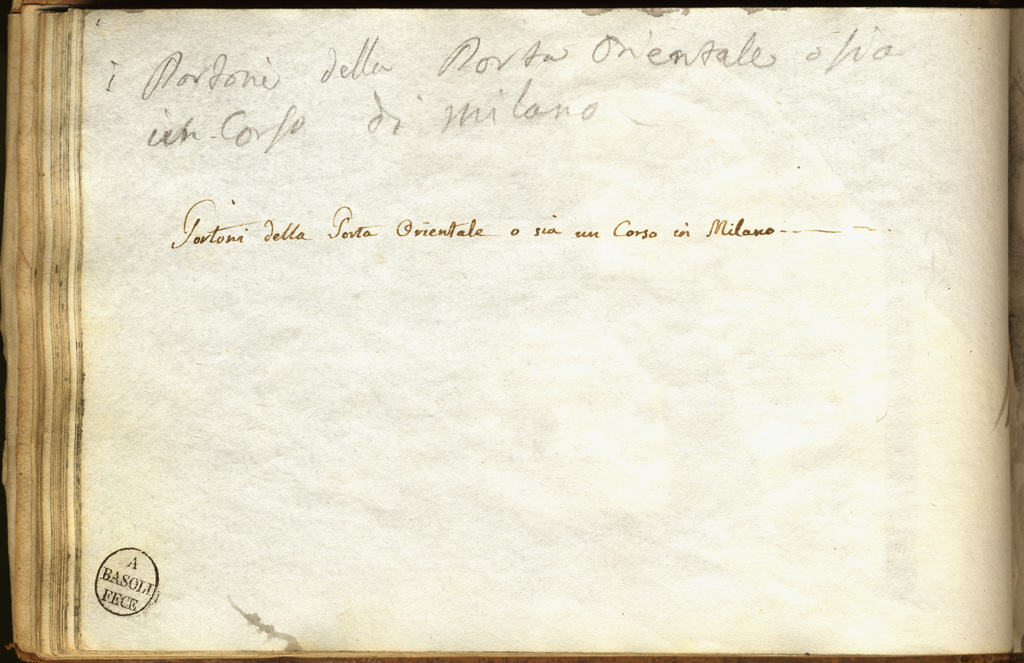 i Portoni della Porta Orientale o sia
un Corso di milano
Portoni della Porta Orientale o sia un Corso in Milano
A
BASOLI
FECE